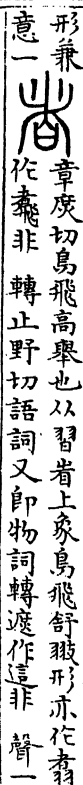 形兼
意一
章庶切鳥飛高舉也从習省上象鳥飛舒翅形亦作翥
作非 轉止野切語詞又即物詞轉遽作這非 聲一